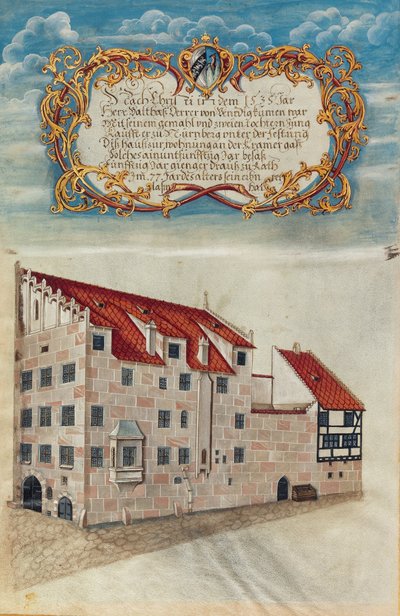 Nach Christi in dem 1535 Jar
Herr Balthas Derrer von Venedig kumen war
Mit seinem gemahl und zweien tochten Jung
Kaufft er zu Nürnberg unter der Festung
Diß hauß zur wohnung an der Cramer gaß
Solches an unt funfftzig Jar besaß
Fünfftzig Jar gienger drauß zu Rath
Im 77 Jar des alters sein ihn